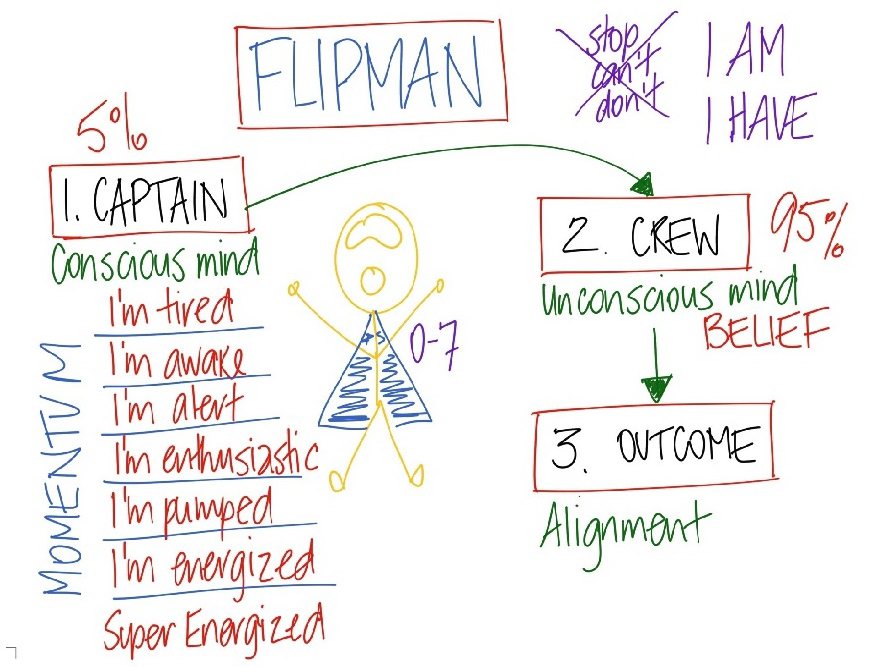 FLIPMAN
stop
can't
don't
I AM
I HAVE
5%
1. CAPTAIN
Conscious mind
I'm tired
I'm awake
I'm alert
I'm enthusiastic
I'm pumped
I'm energized
Super Energized
MOMENTUM
0-7
2. CREW
95%
Unconscious mind
BELIEF
3. OUTCOME
Alignment